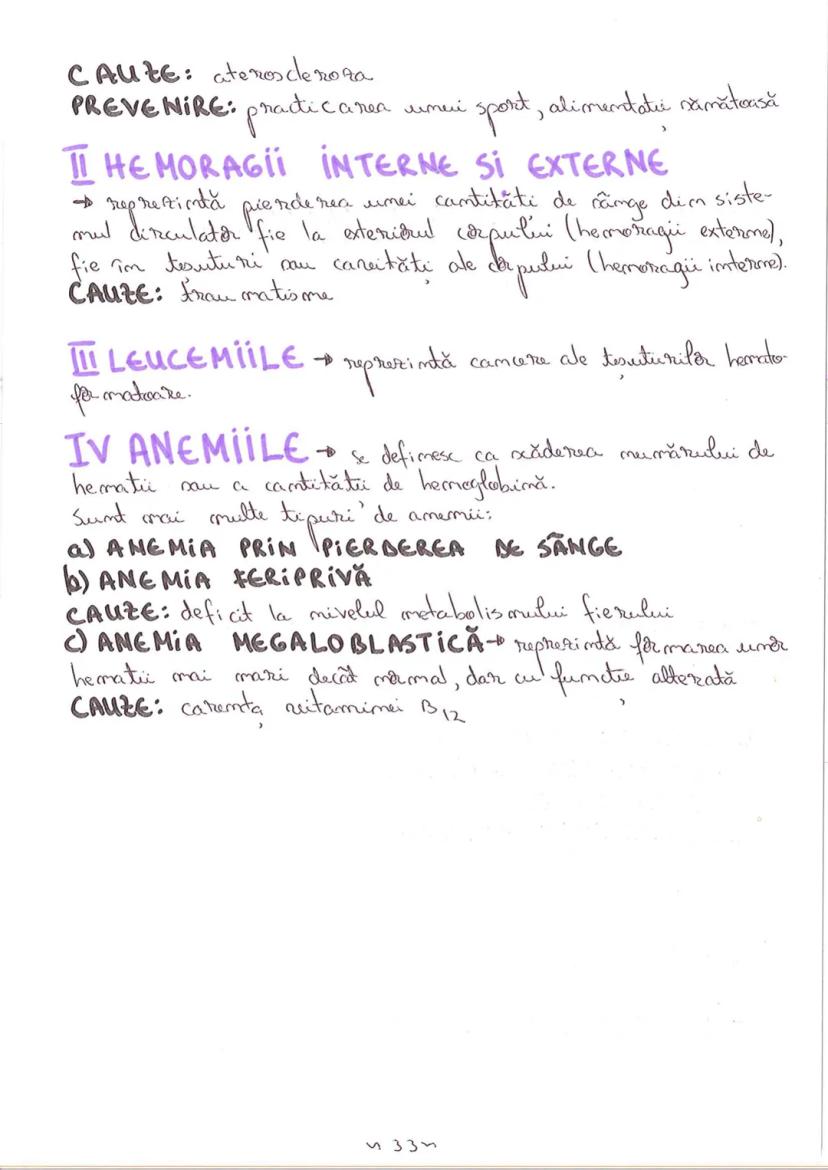 CAUZE: ateroscleroza
PREVENIRE: practicarea unui sport, alimentatți sănătoasă
II HEMORAGII INTERNE SI EXTERNE
→ reprezintă pierderea unei cantități de sânge din siste-
mul circulator fie la exteriorul corpului (hemoragii externe),
fie în tesuturi sau cavități ale corpului (hemoragii interne).
CAUZE: traumatisme
III LEUCEMIILE → reprezintă cancere ale țesuturilor hemato-
formatoare.
IV ANEMIILE → se definesc ca scăderea numărului de
hematii sau a cantității de hemoglobină.
Sunt mai multe tipuri de anemii:
a) ANEMIA PRIN PIERDEREA DE SÂNGE
b) ANEMIA FERIPRIVĂ
CAUZE: deficit la nivelul metabolismului fierului
c) ANEMIA MEGALOBLASTICĂ → reprezintă formarea unor
hematii mai mari decât normal, dar cu funcție alterată
CAUZE: carența vitaminei B12
~ 33 ~